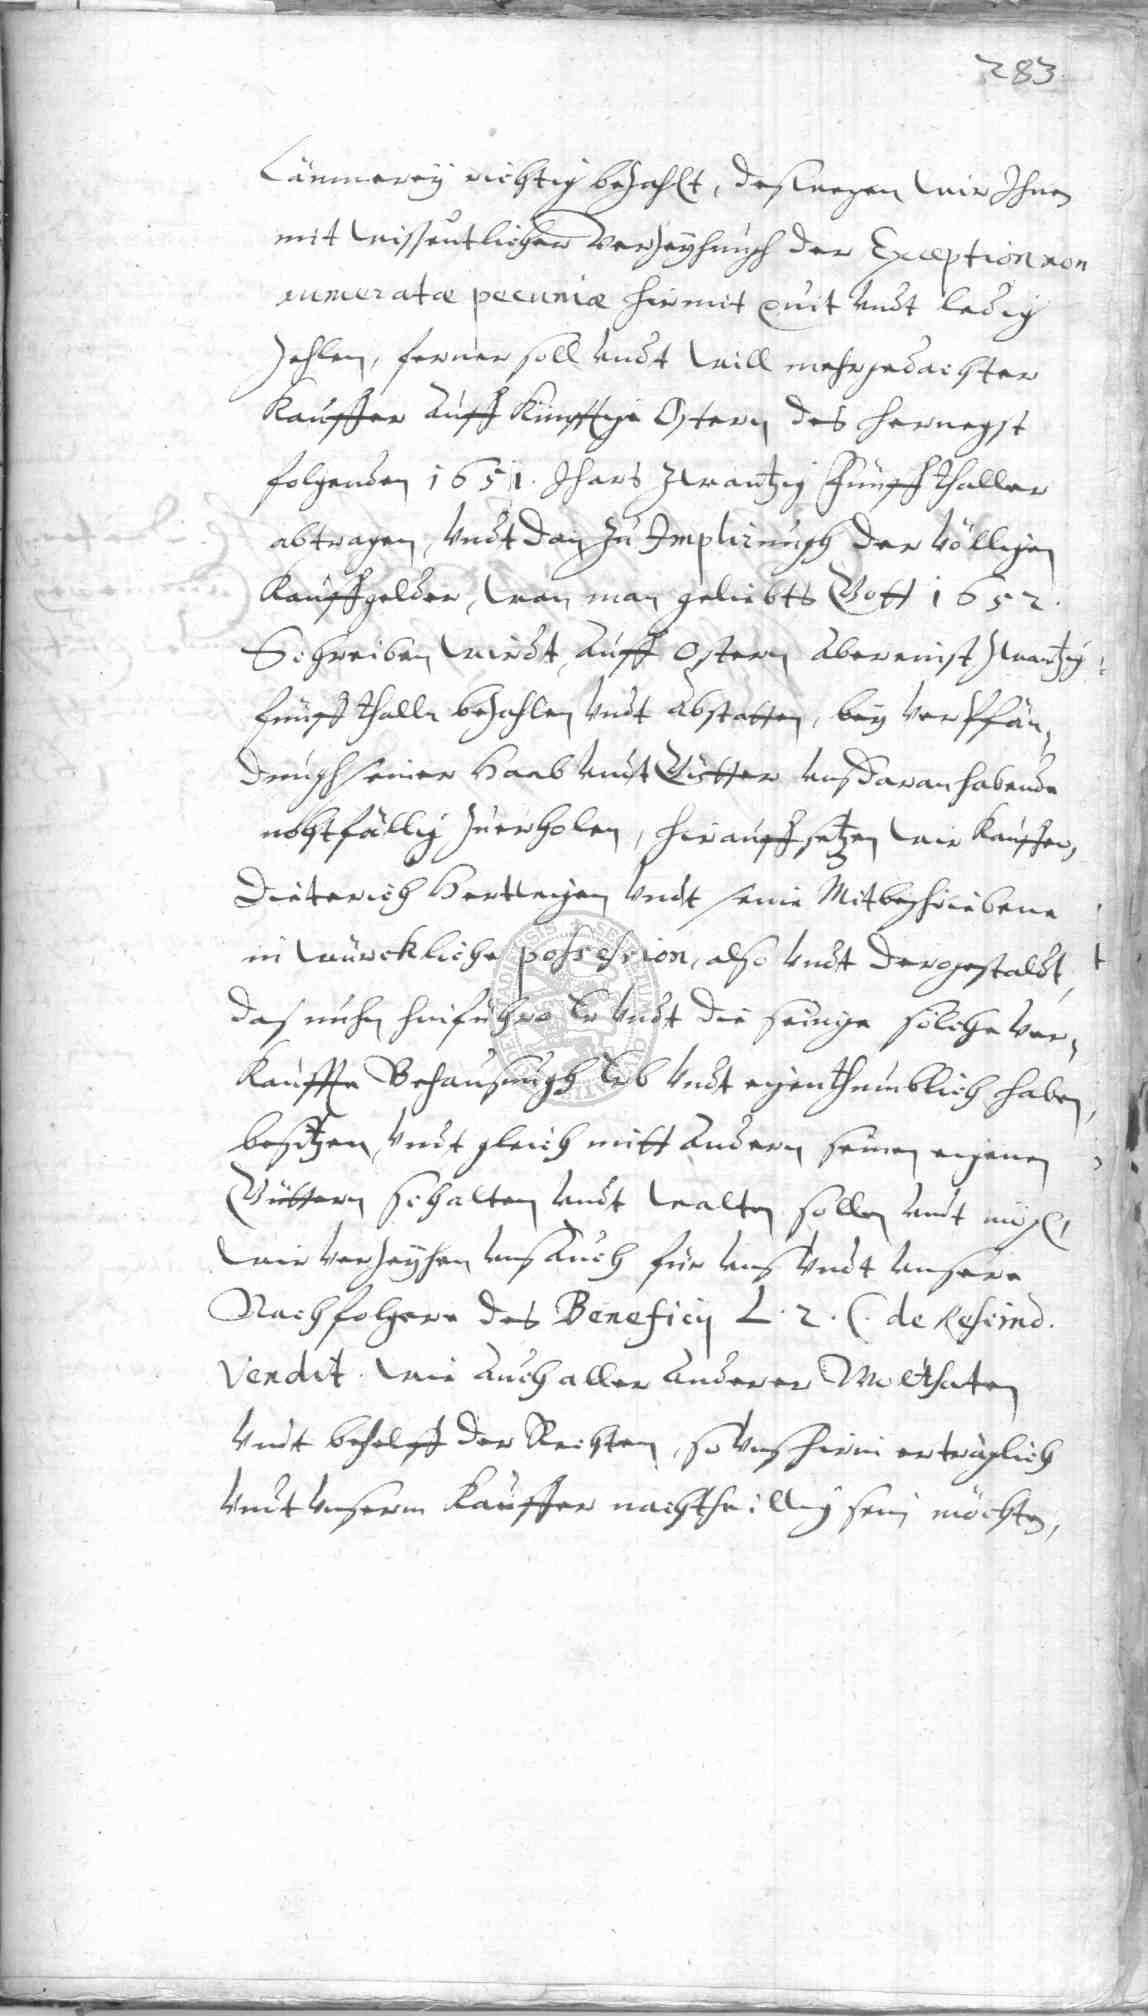 283
Cämmerey richtig bezahlt, deswegen wir Ihme
mit wissentlicher Verzeyhungh der Exception non
numeratæ pecuniæ hirmit quit undt ledig
zehlen, ferner soll undt will mehrgedachter
Kauffer auff Künfftige Ostern des hernegst
folgenden 1651. Jhars zwantzig fünff thaller
abtragen, undt dan zu Implirungh der völligen
Kauffgelder, wan man geliebts Gott 1652.
Schreiben wirdt, auff Ostern abereinst zwantzig
fünff thallr bezahlen undt abstatten, bey Verpfän,
dungh seiner Haab undt Gütter uns daran habende
nohtfällig zuerholen, hirauff setzen wir Kauffer,
Dieterich Hertwigen undt seine Mitbeschriebene
in würckliche possession, also undt dergestaldt,
das nuhn hinführo Er undt die seinige solche ver,
Kauffte Behausungh Erb undt eigenthumblich haben,
besitzen, undt gleich mitt andern seinen eigenen
Güttern schalten undt walten sollen undt mögen,
wir verzeyhen uns auch für uns undt unsere
Nachfolgere des Beneficij L. 2. C. de Rescind.
Vendit. wie auch aller anderer Wolthaten
undt behelff der Rechten, so uns hirin erträglich
undt unserm Kauffer nachtheillig sein möchten,